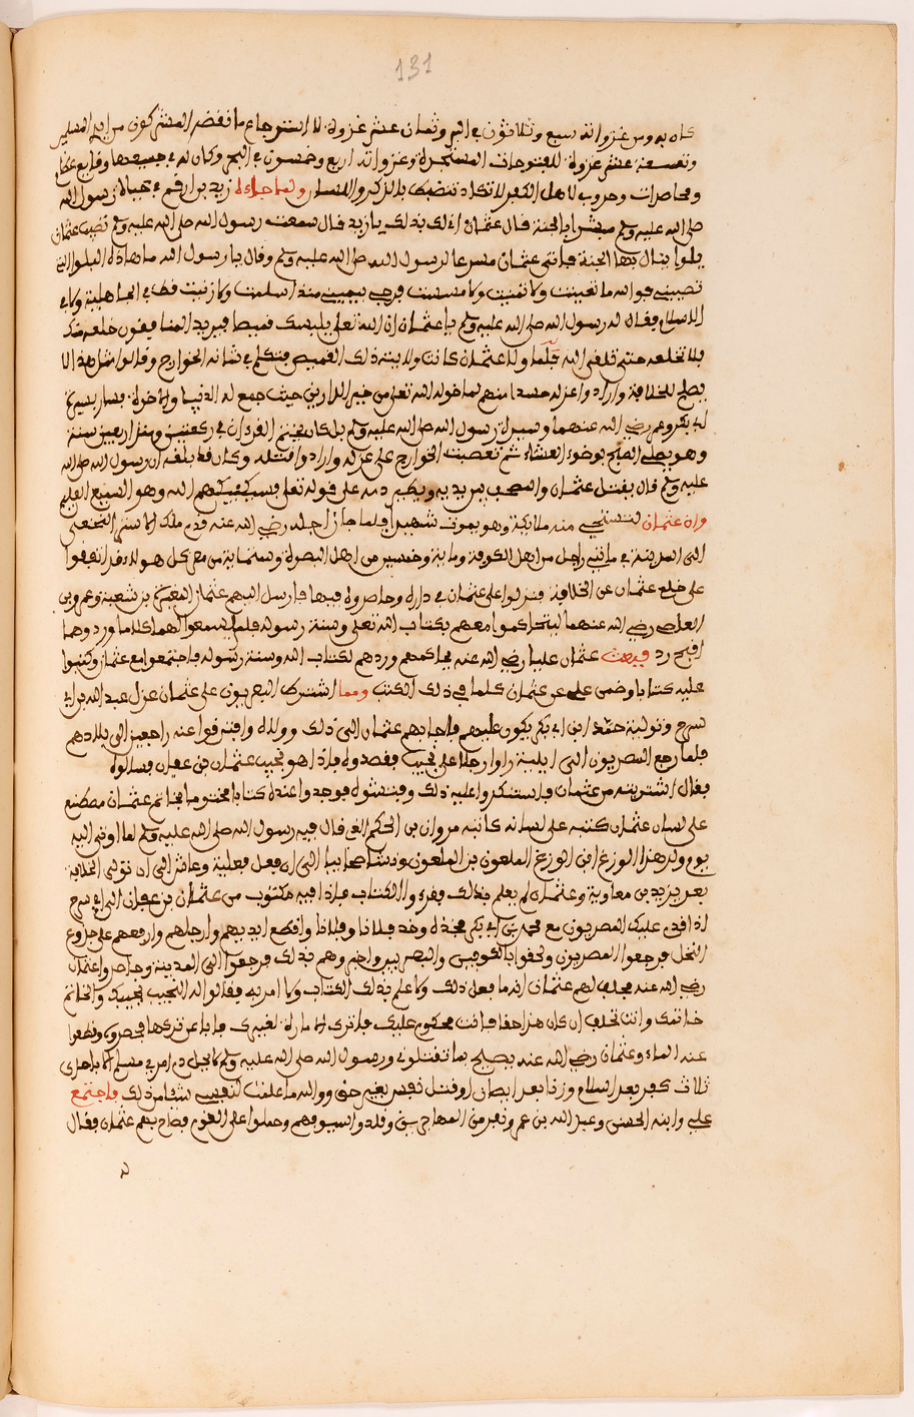 131
غزواته سبع وثلاثون في البر وثمان عشر غزوة لاسترجاع ما نقض المشركون من ايد المسلمين
وتسعة عشر غزوة للفتوحات المستجرة وغزواته اربع وخمسون في البحر وكان له في جميعها وقايع عظام
ومحاصرات وحروب لاهل الكفر لا تكاد تنضبط بالذكر واللسان ولما جاءه زيد بن ارقم رسول الله
صلى الله عليه وسلم مبشرا بالجنة فال عثمان اءلك بذلك يا زيد فال سمعت رسول الله صلى الله عليه وسلم تصيب عثمان
بلوا ينال بها الجنة فاتى عثمان مسرعا لرسول الله صلى الله عليه وسلم وفال يا رسول الله ما هاذه البلوا التي
تصيبني فوالله ما تغنيت ولا تمنيت ولا مسست فرجي بيميني منذ اسلمت ولا زنيت فط في الجاهلية ولا في
الاسلام فقال له رسول الله صلى الله عليه وسلم يا عثمان ان الله تعلى يلبسك فميصا فيريد المنافقون خلعه منك
فلا تخلعه حتى تلفى الله فلما ولا عثمان كانت ولايته ذلك الفميص فتكلم في شانه الخوارج وفالوا مثل هذا لا
يصلح للخلافة وارادوا عزله حسدا منهم لما خوله الله تعلى من خير الدارين حيث جمع له الدنيا والاخرة فسار بسيرة
ابي بكر وعمر رضي الله عنهما وسيرة رسول الله صلى الله عليه وسلم فلكان يختم الفرءان في ركعتين اربعين سنة
وهو يصلي الصبح بوضوء العشاء ثم تعصبت الخوارج على عزله وارادوا فتله وكان فد بلغه ان رسول الله صلى الله
عليه وسلم فال يفتل عثمان والمصحف بين يديه ويفطر دمه على فوله تعلى فسيكفيكهم الله وهو السميع العليم
وان عثمان لتستحي منه ملايكة وهو يموت شهيدا فلما حان اجله رضي الله عنه فدم ملك الاشتر النخعي
الى المدينة في مايتي راجل من اهل الكوفة وماية وخمسين من اهل البصرة وستماية من مصر كل هولاء فد اتففوا
على خلع عثمان عن الخلافة فنزلوا على عثمان في داره وحاصروه فيها فارسل اليهم عثمان المغيرة بن شعبة وعمرو بن
العاص رضي الله عنهما ليتحاكموا معهم بكتاب الله تعلى وسنة رسوله فلم يسمعوا لهما كلاما وردوهما
افبح رد فبعث عثمان عليا رضي الله عنه فحاكمهم وردهم لكتاب الله وسنة رسوله فاجتمعوا مع عثمان وكتبوا
عليه كتابا وضمن علي عن عثمان كلما في ذلك الكتب ومما اشترط المصريون على عثمان عزل عبد الله بن ابي
سرح وتولية محمد ابن ابي بكر يكون عليهم فاجابهم عثمان الى ذلك وولاه وافترفوا عنه راجعين الى بلادهم
فلما رجع المصريون الى ايلية راوا رجلا على نجيب فقصدوه فاذا هو نجيب عثمان بن عفان فسالوه
فقال اشتريته من عثمان فاستنكروا عليه ذلك وفتشوه فوجدوا عنده كتابا مختوما بخاتم عثمان مصطنع
على لسان عثمان كتبه على لسانه كاتبه مروان بن الحكم الذي فال فيه رسول الله صلى الله عليه وسلم لما اوتى اليه
يوم ولد هذا الوزغ ابن الوزغ الملعون بن الملعون ونشا صحابيا الى ان فعل فعلته وعاش الى ان تولى الخلافة
بعد يزيد بن معاوية وعثمان لم يعلم بذلك ففرءوا الكتاب فاذا فيه مكتوب من عثمان بن عفان الى ابي سرح
اذا فدم عليك المصريون مع محمد بن ابي بكر فخذه وخذ فلانا وفلانا وافطع ايديهم وارجلهم وارفعهم على جذوع
النخل فرجعوا المصريون ولحقوا بالكوفيين والبصريين واخبروهم بذلك فرجعوا الى المدينة وحاصروا عثمان
رضي الله عنه فحلف لهم عثمان انه ما فعل ذلك ولا علم بذلك الكتاب ولا امر به فقالوا له النجيب نجيبك والخاتم
خاتمك وانت تحلف ان كان هذا حفا فانت محكوم عليك فاترك الامارة لغيرك فابا عن تركها فحصروه وفطعوا
عنه الماء وعثمان رضي الله عنه يصيح بما تفتلوني ورسول الله صلى الله عليه وسلم لا يحل دم امرء مسلم الا باحدى
ثلاث كفر بعد اسلام وزنا بعد احصان او فتل نفس بغير حق ووالله ما علمت لنفسي شيا من ذلك فاجتمع
علي وابنه الحسن وعبد الله بن عمر ونفر من المهاجرين وفلدوا سيوفهم وحملوا على الفوم فصاح بهم عثمان فقال